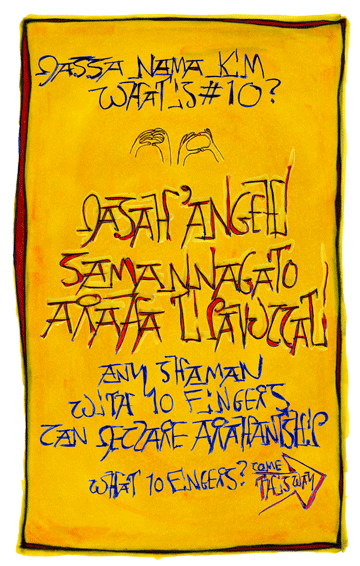 DASSA NAMA KIM
WHAT IS #10?
DASAH'ANGEHI
SAMANNAGATO
ARAHA TI PAVUCCATI
ANY SHAMAN
WITH 10 FINGERS
CAN DECLARE ARAHANTSHIP
WHAT 10 FINGERS?
COME
THIS WAY